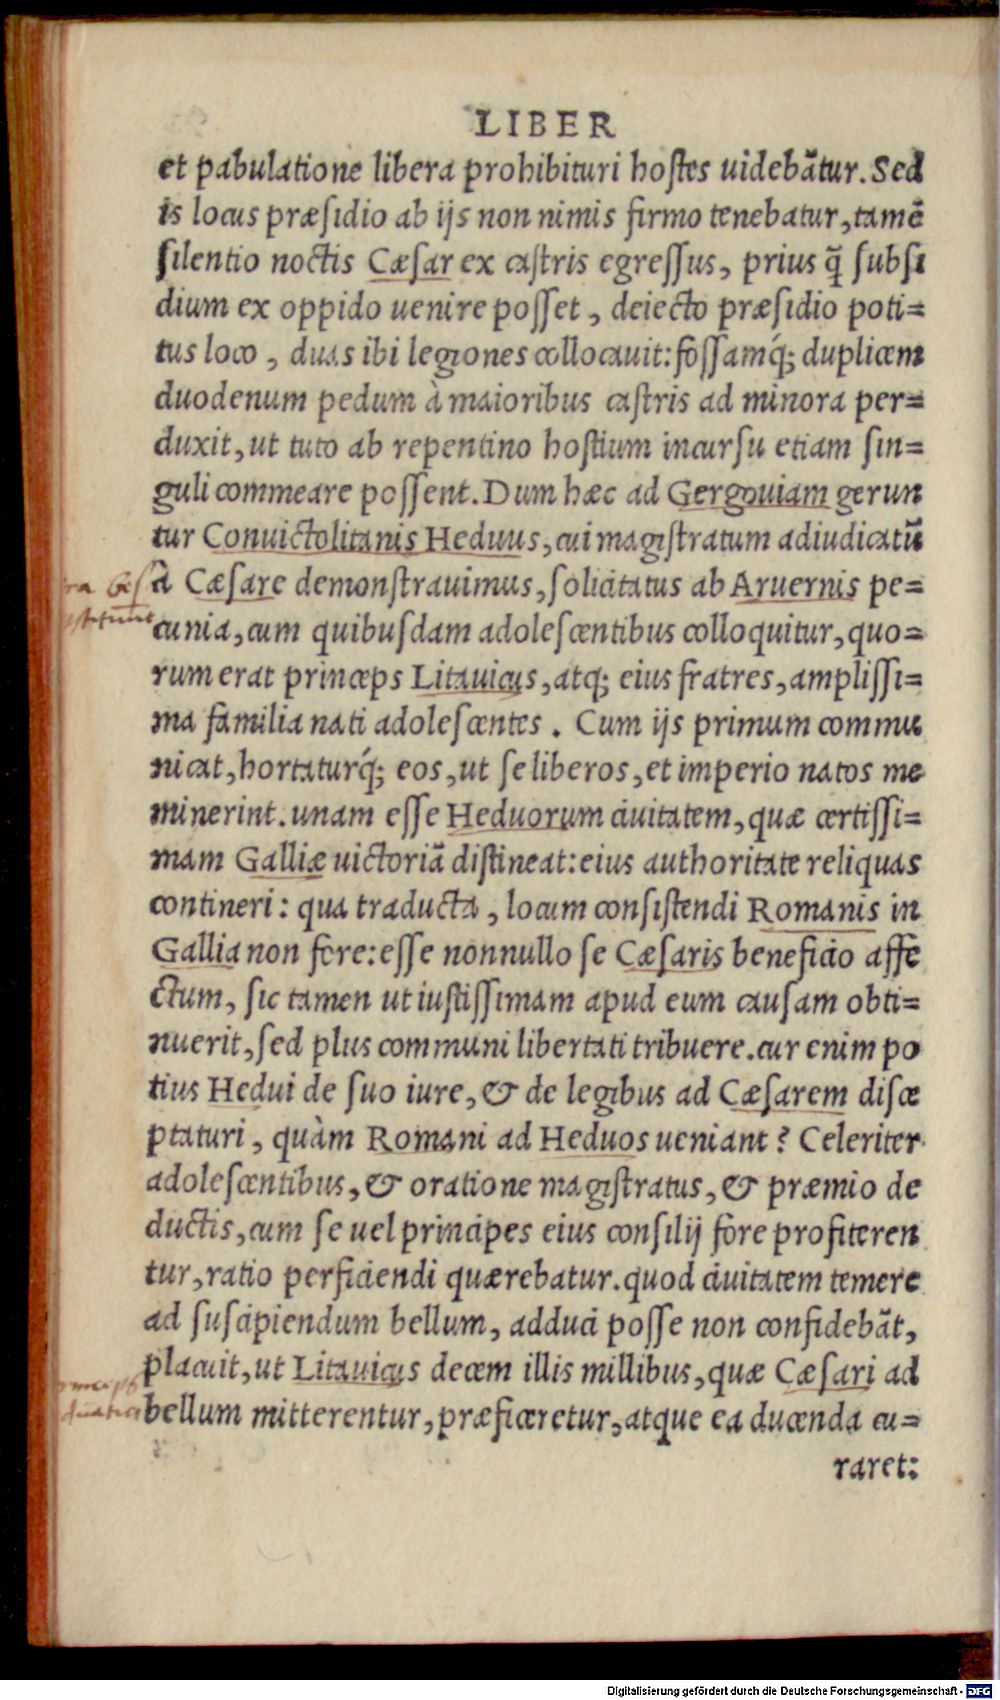 LIBER
et pabulatione libera prohibituri hostes uidebãtur. Sed
is locus præsidio ab ijs non nimis firmo tenebatur, tamẽ
silentio noctis Cæsar ex castris egressus, prius q̃ subsi
dium ex oppido uenire posset, deiecto præsidio poti=
tus loco, duas ibi legiones collocauit: fossamq́; duplicem
duodenum pedum à maioribus castris ad minora per=
duxit, ut tuto ab repentino hostium incursu etiam sin=
guli commeare possent. Dum hæc ad Gergouiam gerun
tur Conuictolitanis Heduus, cui magistratum adiudicatũ
à Cæsare demonstrauimus, solicitatus ab Aruernis pe=
cunia, cum quibusdam adolescentibus colloquitur, quo=
rum erat princeps Litauicus, atq; eius fratres, amplissi=
ma familia nati adolescentes. Cum ijs primum commu
nicat, hortaturq́; eos, ut se liberos, et imperio natos me
minerint. unam esse Heduorum ciuitatem, quæ certissi=
mam Galliæ uictoriã distineat: eius authoritate reliquas
contineri: qua traducta, locum consistendi Romanis in
Gallia non fore: esse nonnullo se Cæsaris beneficio affe
ctum, sic tamen ut iustissimam apud eum causam obti=
nuerit, sed plus communi libertati tribuere. cur enim po
tius Hedui de suo iure, & de legibus ad Cæsarem disce
ptaturi, quàm Romani ad Heduos ueniant? Celeriter
adolescentibus, & oratione magistratus, & præmio de
ductis, cum se uel principes eius consilij fore profiteren
tur, ratio perficiendi quærebatur. quod ciuitatem temere
ad suscipiendum bellum, adduci posse non confidebãt,
placuit, ut Litauicus decem illis millibus, quæ Cæsari ad
bellum mitterentur, præficeretur, atque ea ducenda cu=
raret:
Digitalisierung gefördert durch die Deutsche Forschungsgemeinschaft - DFG